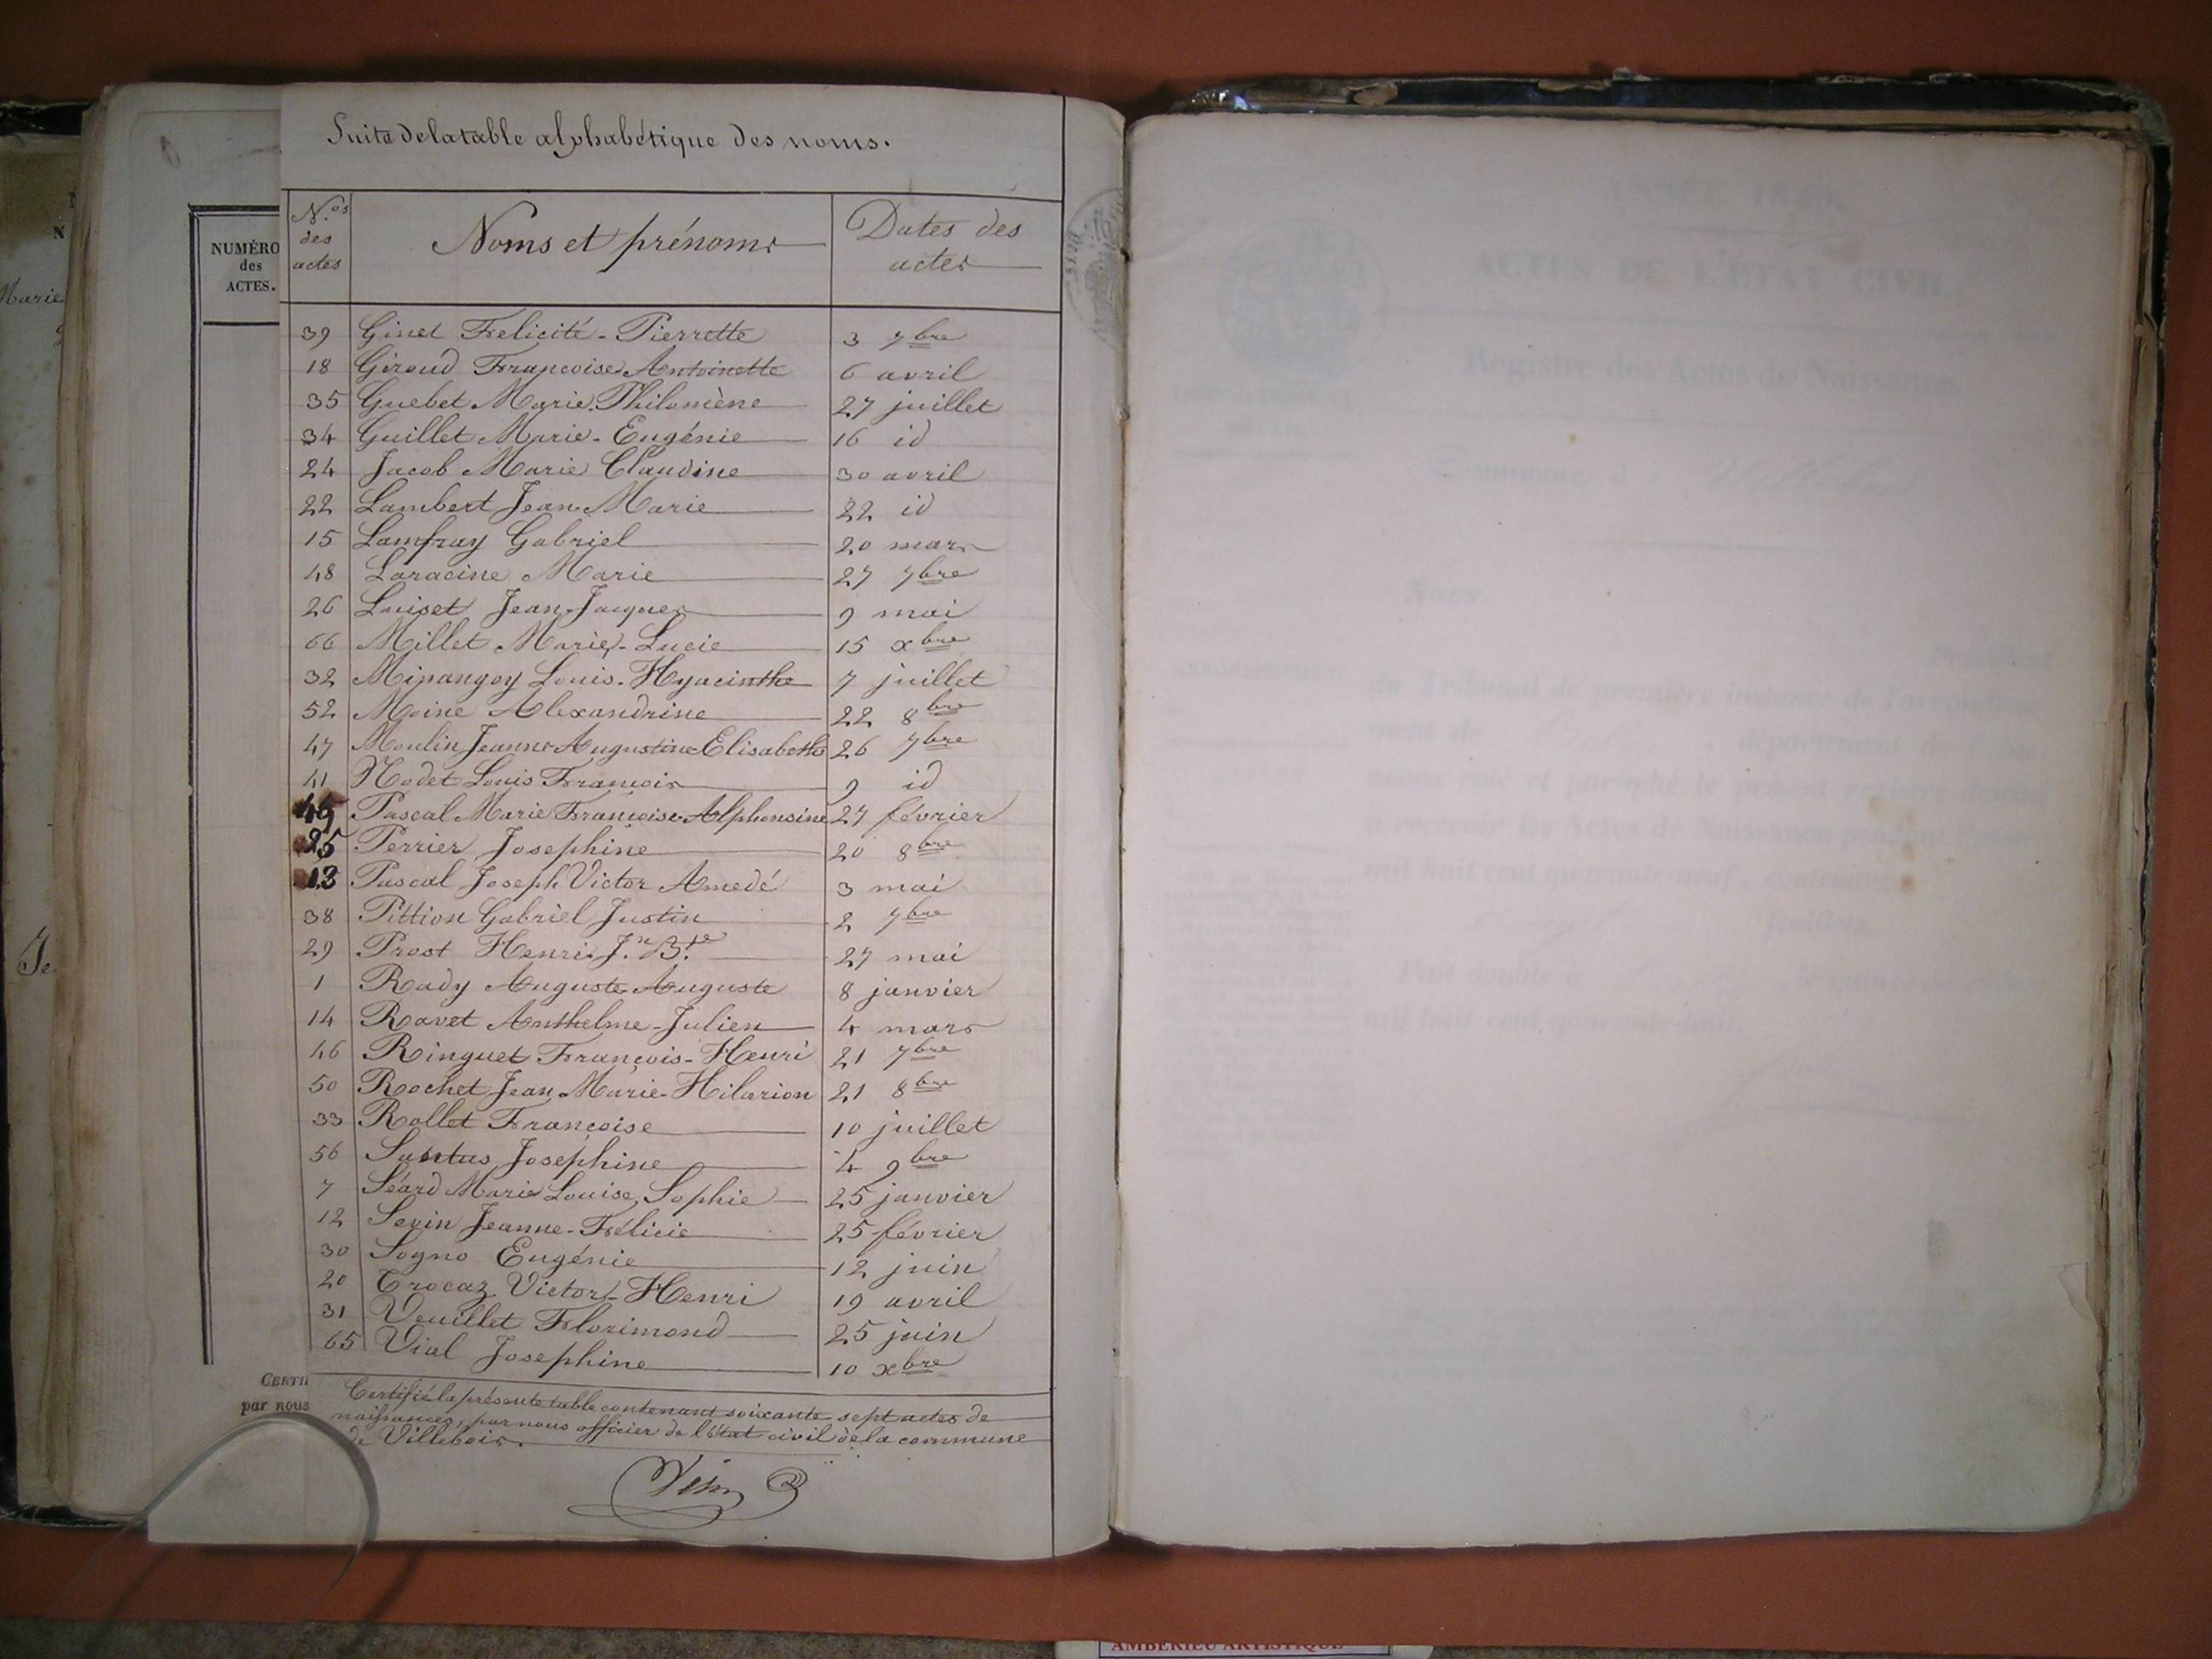 Suite de la table alphabétique des noms.
NUMÉRO
des
ACTES.
N.os des actes
Noms et prénoms
Dates des actes
39 Ginet Felicité-Pierrette 3 7bre
18 Giroud Françoise Antoinette 6 avril
35 Guebet Marie Philomène 27 juillet
34 Guillet Marie-Eugénie 16 id
24 Jacob Marie Claudine 30 avril
22 Lambert Jean-Marie 22 id
15 Lamfray Gabriel 20 mars
48 Laracine Marie 27 7bre
26 Luiset Jean-Jacques 9 mai
66 Millet Marie-Lucie 15 xbre
32 Mipangoy Louis-Hyacinthe 7 juillet
52 Moine Alexandrine 22 8bre
47 Moulin Jeanne Augustine Elisabeth 26 7bre
41 Nodet Louis François 9 id
Pascal Marie Françoise Alphonsine 27 février
25 Perrier Josephine 20 8bre
13 Pascal Joseph Victor Amedé 3 mai
38 Pittion Gabriel Justin 2 7bre
29 Prost Henri J.n B.te 27 mai
1 Rady Auguste Auguste 8 janvier
14 Ravet Anthelme-Julien 4 mars
46 Ringuet François-Henri 21 7bre
50 Rochet Jean Marie-Hilarion 21 8bre
33 Rollet Françoise 10 juillet
56 Santus Josephine 4 9bre
7 Séard Marie Louise Sophie 25 janvier
12 Sevin Jeanne-Félicie 25 février
30 Sogno Eugénie 12 juin
20 Trocaz Victor-Henri 19 avril
31 Veuillet Florimond 25 juin
65 Vial Josephine 10 xbre
CERTI
par nous
Certifié la présente table contenant soixante sept actes de
naissances, par nous officier de l'état civil de la commune
de Villebois.
ACTES DE L'ÉTAT CIVIL
Registre des Actes de Naissance
Nous
Président
du Tribunal de première instance de l'arrondisse-
ment de , département de l'Ain,
avons coté et paraphé le présent registre destiné
à recevoir les Actes de Naissance pendant
mil huit cent quarante-neuf, contenant
feuillets
Fait double à
mil huit cent quarante-huit
AMBÉRIEU ARTISTIQUE